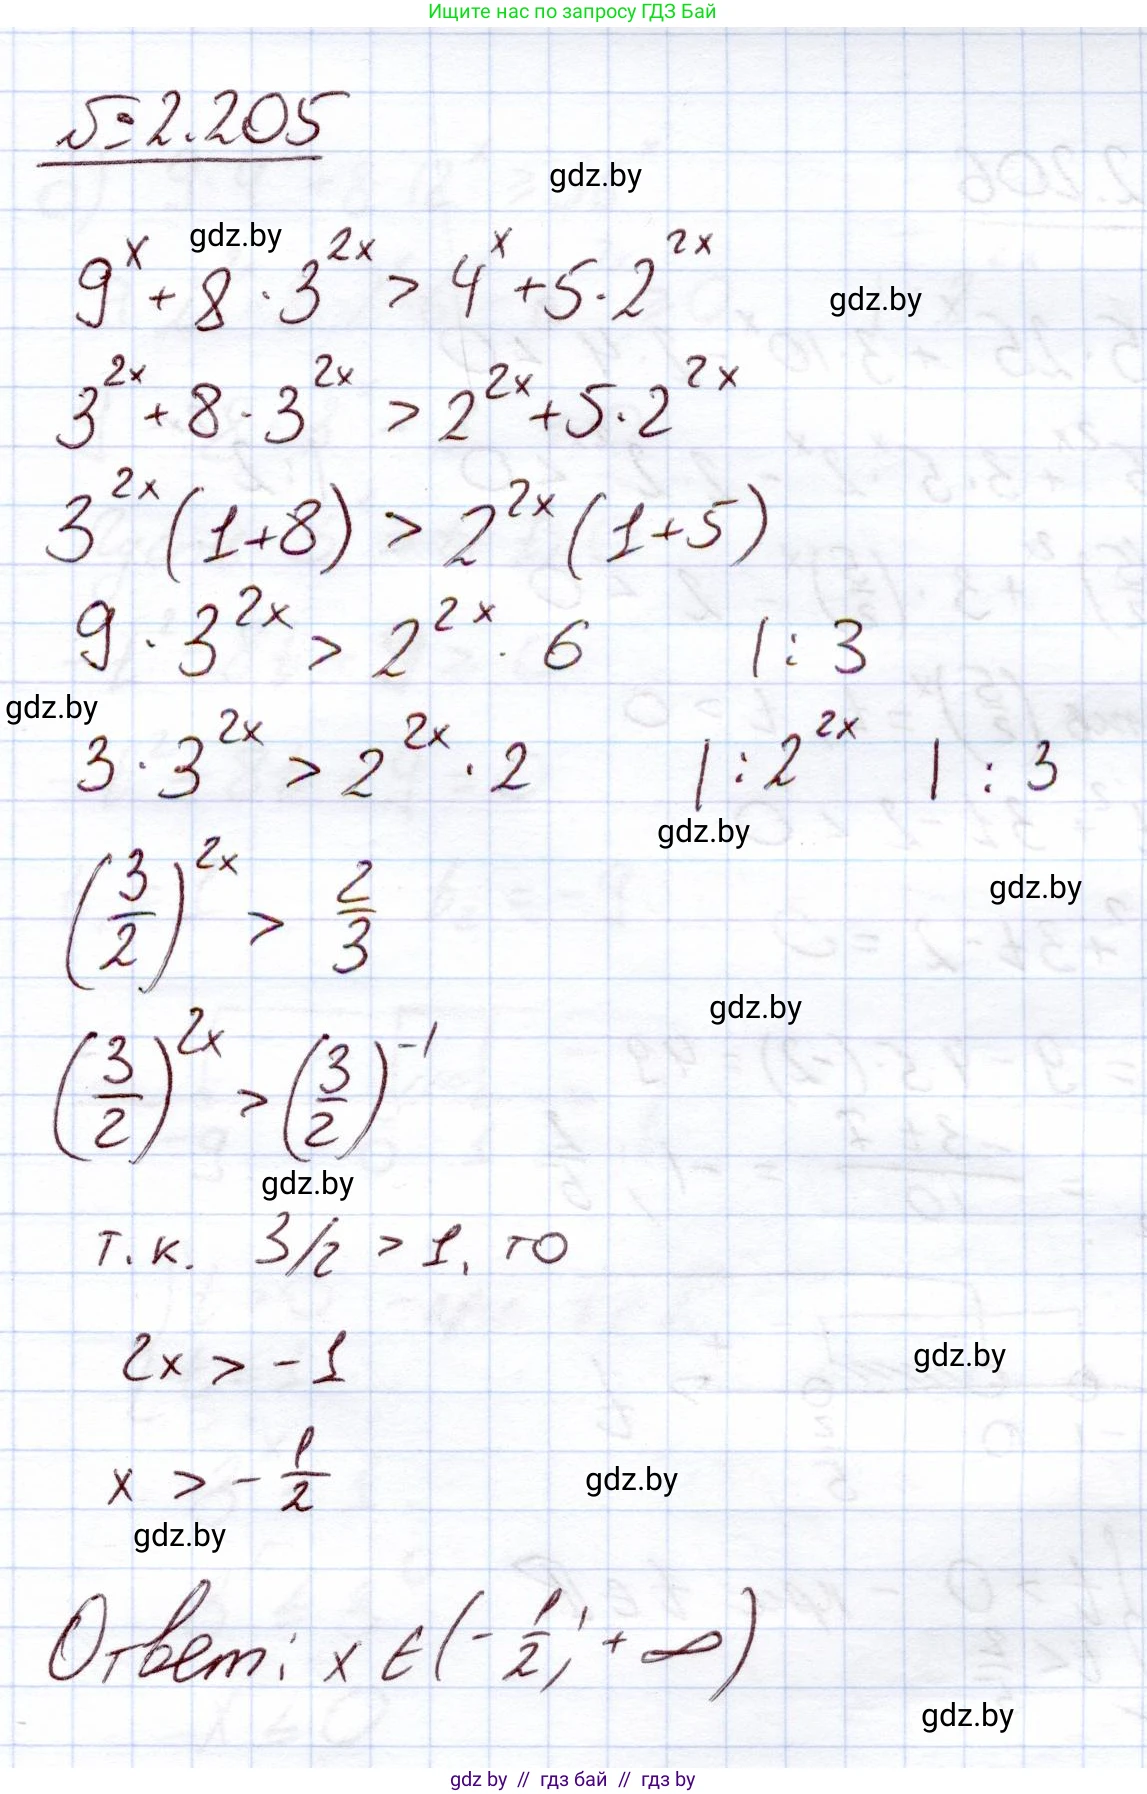 Ищите нас по запросу ГДЗ Бай
№ 2.205
gdz.by
gdz.by
9^x + 8 · 3^{2x} > 4^x + 5 · 2^{2x}
gdz.by
3^{2x} + 8 · 3^{2x} > 2^{2x} + 5 · 2^{2x}
3^{2x} (1+8) > 2^{2x} (1+5)
9 · 3^{2x} > 2^{2x} · 6 | : 3
gdz.by
3 · 3^{2x} > 2^{2x} · 2 | : 2^{2x} | : 3
gdz.by
gdz.by
(3/2)^{2x} > 2/3
gdz.by
(3/2)^{2x} > (3/2)^{-1}
gdz.by
т.к. 3/2 > 1, то
2x > -1
gdz.by
x > -1/2
gdz.by
gdz.by
Ответ: x ∈ (-1/2; +∞)
gdz.by
gdz by // гдз бай // гдз by